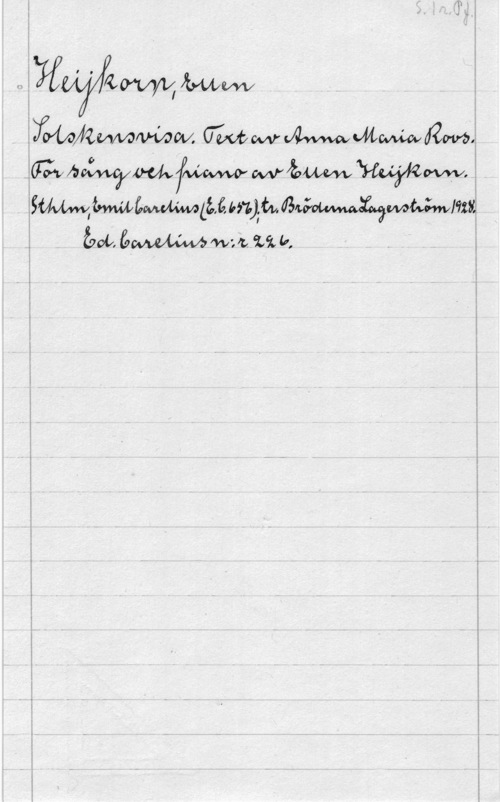 S. 1 r. Pf.
Heijkorn, Ellen
Solskensvisa. Text av Anna Maria Roos.
För sång och piano av Ellen Heijkorn.
Sthlm, Emil Carelius (E.C. 656), tr. Bröderna Lagerström 1928.
Ed. Carelius n:r 226.